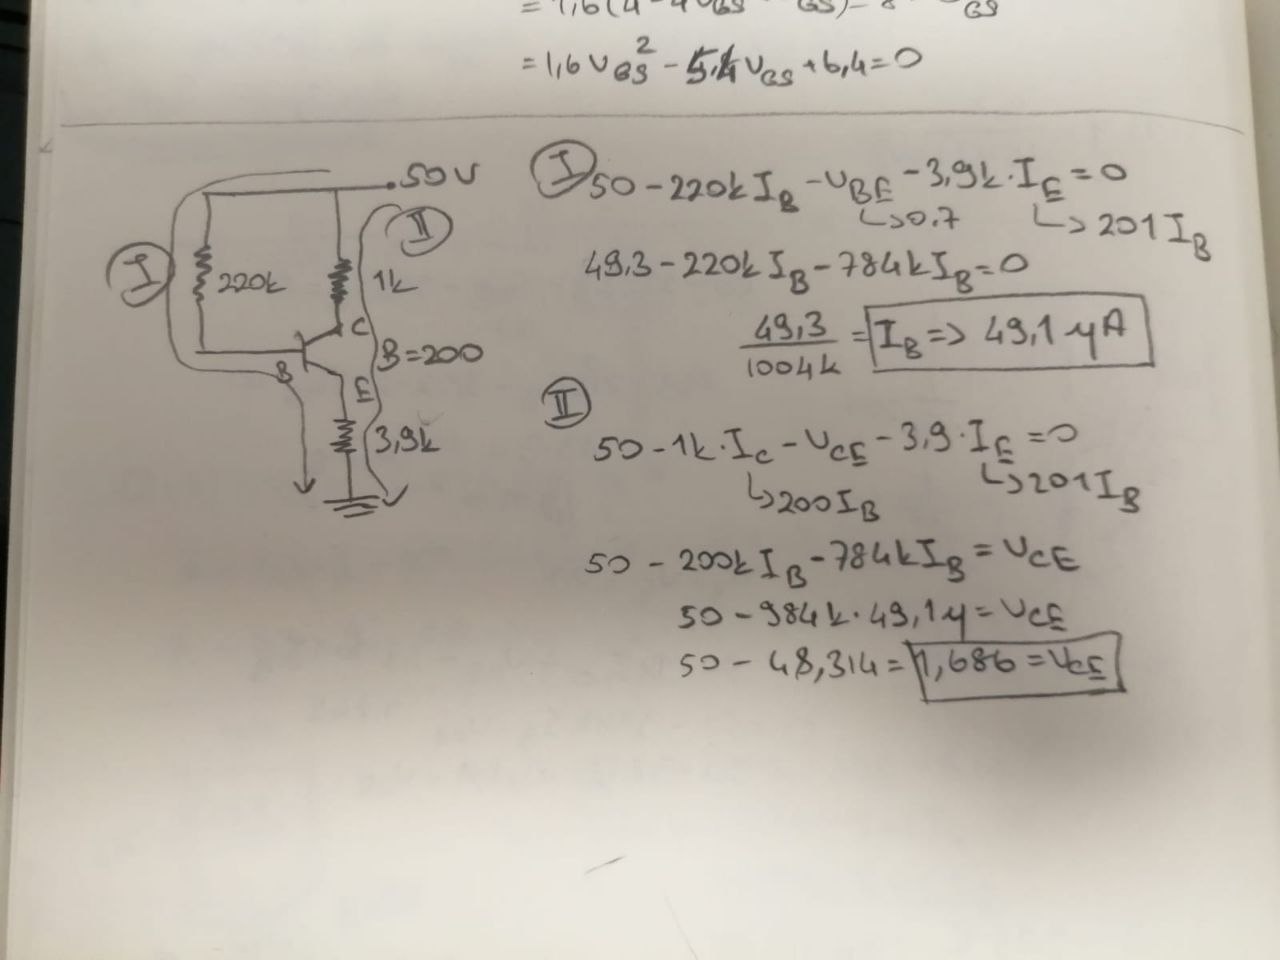 = 1,6 V_GS² - 5,4 V_GS + 6,4 = 0
.50V
I
II
220k
1k
C
B
B=200
E
3,9k
I
50 - 220k I_B - V_BE - 3,9k . I_E = 0
↳0.7
↳ 201 I_B
49,3 - 220k I_B - 784k I_B = 0
49,3 / 1004k = I_B => 49,1 μA
II
50 - 1k . I_C - V_CE - 3,9 . I_E = 0
↳200 I_B
↳201 I_B
50 - 200k I_B - 784k I_B = V_CE
50 - 984k . 49,1μ = V_CE
50 - 48,314 = 1,686 = V_CE